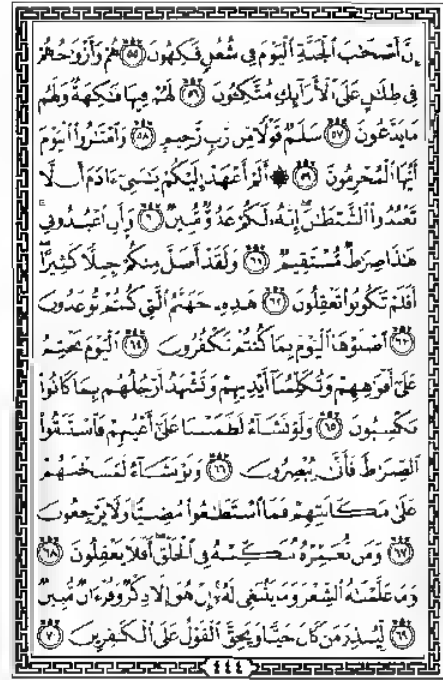 إِنَّ أَصْحَٰبَ ٱلْجَنَّةِ ٱلْيَوْمَ فِى شُغُلٍ فَٰكِهُونَ ٥٥ هُمْ وَأَزْوَٰجُهُمْ
فِى ظِلَٰلٍ عَلَى ٱلْأَرَآئِكِ مُتَّكِـُٔونَ ٥٦ لَهُمْ فِيهَا فَٰكِهَةٌ وَلَهُم
مَّا يَدَّعُونَ ٥٧ سَلَٰمٌ قَوْلًا مِّن رَّبٍّ رَّحِيمٍ ٥٨ وَٱمْتَٰزُوا۟ ٱلْيَوْمَ
أَيُّهَا ٱلْمُجْرِمُونَ ٥٩ ۞ أَلَمْ أَعْهَدْ إِلَيْكُمْ يَٰبَنِىٓ ءَادَمَ أَن لَّا
تَعْبُدُوا۟ ٱلشَّيْطَٰنَ إِنَّهُۥ لَكُمْ عَدُوٌّ مُّبِينٌ ٦٠ وَأَنِ ٱعْبُدُونِى
هَٰذَا صِرَٰطٌ مُّسْتَقِيمٌ ٦١ وَلَقَدْ أَضَلَّ مِنكُمْ جِبِلًّا كَثِيرًا
أَفَلَمْ تَكُونُوا۟ تَعْقِلُونَ ٦٢ هَٰذِهِۦ جَهَنَّمُ ٱلَّتِى كُنتُمْ تُوعَدُونَ
٦٣ ٱصْلَوْهَا ٱلْيَوْمَ بِمَا كُنتُمْ تَكْفُرُونَ ٦٤ ٱلْيَوْمَ نَخْتِمُ
عَلَىٰٓ أَفْوَٰهِهِمْ وَتُكَلِّمُنَآ أَيْدِيهِمْ وَتَشْهَدُ أَرْجُلُهُم بِمَا كَانُوا۟
يَكْسِبُونَ ٦٥ وَلَوْ نَشَآءُ لَطَمَسْنَا عَلَىٰٓ أَعْيُنِهِمْ فَٱسْتَبَقُوا۟
ٱلصِّرَٰطَ فَأَنَّىٰ يُبْصِرُونَ ٦٦ وَلَوْ نَشَآءُ لَمَسَخْنَٰهُمْ
عَلَىٰ مَكَانَتِهِمْ فَمَا ٱسْتَطَٰعُوا۟ مُضِيًّا وَلَا يَرْجِعُونَ
٦٧ وَمَن نُّعَمِّرْهُ نُنَكِّسْهُ فِى ٱلْخَلْقِ أَفَلَا يَعْقِلُونَ ٦٨
وَمَا عَلَّمْنَٰهُ ٱلشِّعْرَ وَمَا يَنۢبَغِى لَهُۥٓ إِنْ هُوَ إِلَّا ذِكْرٌ وَقُرْءَانٌ مُّبِينٌ
٦٩ لِّيُنذِرَ مَن كَانَ حَيًّا وَيَحِقَّ ٱلْقَوْلُ عَلَى ٱلْكَٰفِرِينَ ٧٠
٤٤٤